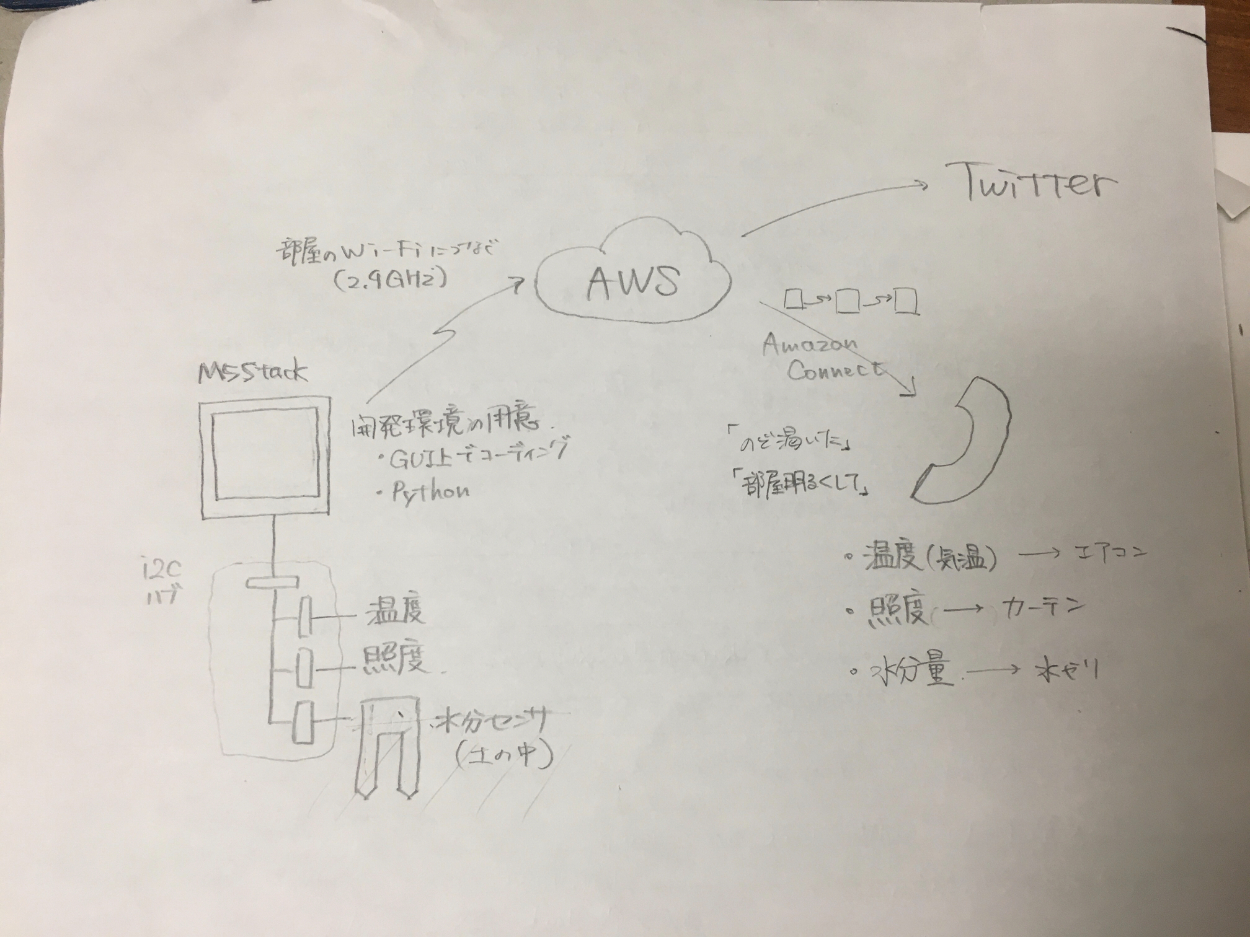 Twitter
部屋のWi-Fiにつなぐ
(2.4GHz)
AWS
Amazon
Connect
M5Stack
開発環境の用意.
・GUI上でコーディング
・Python
「のど渇いた」
「部屋明るくして」
i2C
ハブ
温度
照度.
水分センサ
(土の中)
・温度(気温) → エアコン
・照度 → カーテン
・水分量. → 水やり